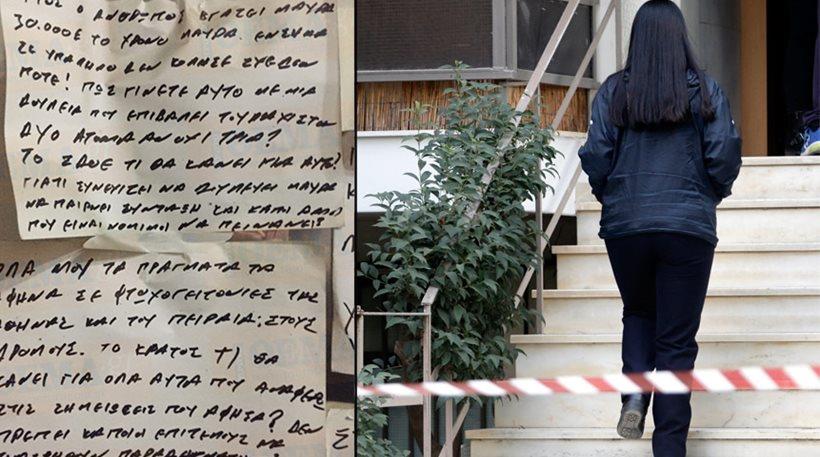 ΑΥΤΟΣ Ο ΑΝΘΡΩΠΟΣ ΒΓΑΖΕΙ ΜΑΥΡΑ
30.000€ ΤΟ ΧΡΟΝΟ ΜΑΥΡΑ. ΕΝΣΗΜΑ
ΣΕ ΥΠΑΛΛΗΛΟ ΔΕΝ ΚΟΛΗΣΕ ΣΧΕΔΟΝ
ΠΟΤΕ! ΠΩΣ ΓΙΝΕΤΕ ΑΥΤΟ ΜΕ ΜΙΑ
ΔΟΥΛΕΙΑ ΠΟΥ ΕΠΙΒΑΛΕΙ ΤΟΥΛΑΧΙΣΤΟΝ
ΔΥΟ ΑΤΟΜΑ ΑΝ ΟΥΧΙ ΤΡΙΑ?
ΤΟ ΣΔΟΕ ΤΙ ΘΑ ΚΑΝΕΙ ΓΙΑ ΑΥΤΟ?
ΓΙΑΤΙ ΣΥΝΕΧΙΖΕΙ ΝΑ ΔΥΛΕΥΕΙ ΜΑΥΡΑ
ΝΑ ΠΑΙΡΝΕΙ ΣΥΝΤΑΞΗ ΚΑΙ ΚΑΠΟΙ ΑΛΛΟΙ
ΠΟΥ ΕΙΝΑΙ ΝΟΜΙΜΟΙ ΝΑ ΠΕΙΝΑΝΕ!
ΟΛΑ ΜΟΥ ΤΑ ΠΡΑΓΜΑΤΑ ΤΑ
ΑΦΗΝΑ ΣΕ ΦΤΩΧΟΓΕΙΤΟΝΙΕΣ ΤΗΣ
ΑΘΗΝΑΣ ΚΑΙ ΤΟΥ ΠΕΙΡΑΙΑ, ΣΤΟΥΣ
ΔΡΟΜΟΥΣ. ΤΟ ΚΡΑΤΟΣ ΤΙ ΘΑ
ΚΑΝΕΙ ΓΙΑ ΟΛΑ ΑΥΤΑ ΠΟΥ ΑΝΑΦΕΡΩ
ΣΤΙΣ ΣΗΜΕΙΩΣΕΙΣ ΠΟΥ ΑΦΗΣΑ? ΔΕΝ
ΠΡΕΠΕΙ ΚΑΠΟΙΟΙ ΕΠΙΤΕΛΟΥΣ ΝΑ